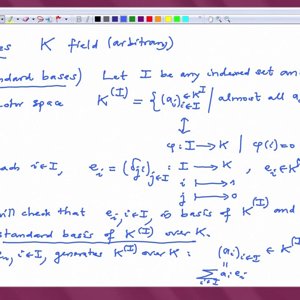 K field (arbitrary)
standard bases) Let I be any indexed set an
space K^(I) = {(a_i)_{i∈I} ∈ K^I | almost all a
φ: I → K | φ(i) =
each i∈I, e_i = (δ_ji)_{j∈I} : I → K, e_i ∈ K
i ↦ 1
j ↦ 0
will check that e_i, i∈I, is basis of K^(I) and
standard basis of K^(I) over K.
e_i, i∈I, generates K^(I) over K: (a_i)_{i∈I} ∈ K
=
∑_{i∈I} a_i e_i